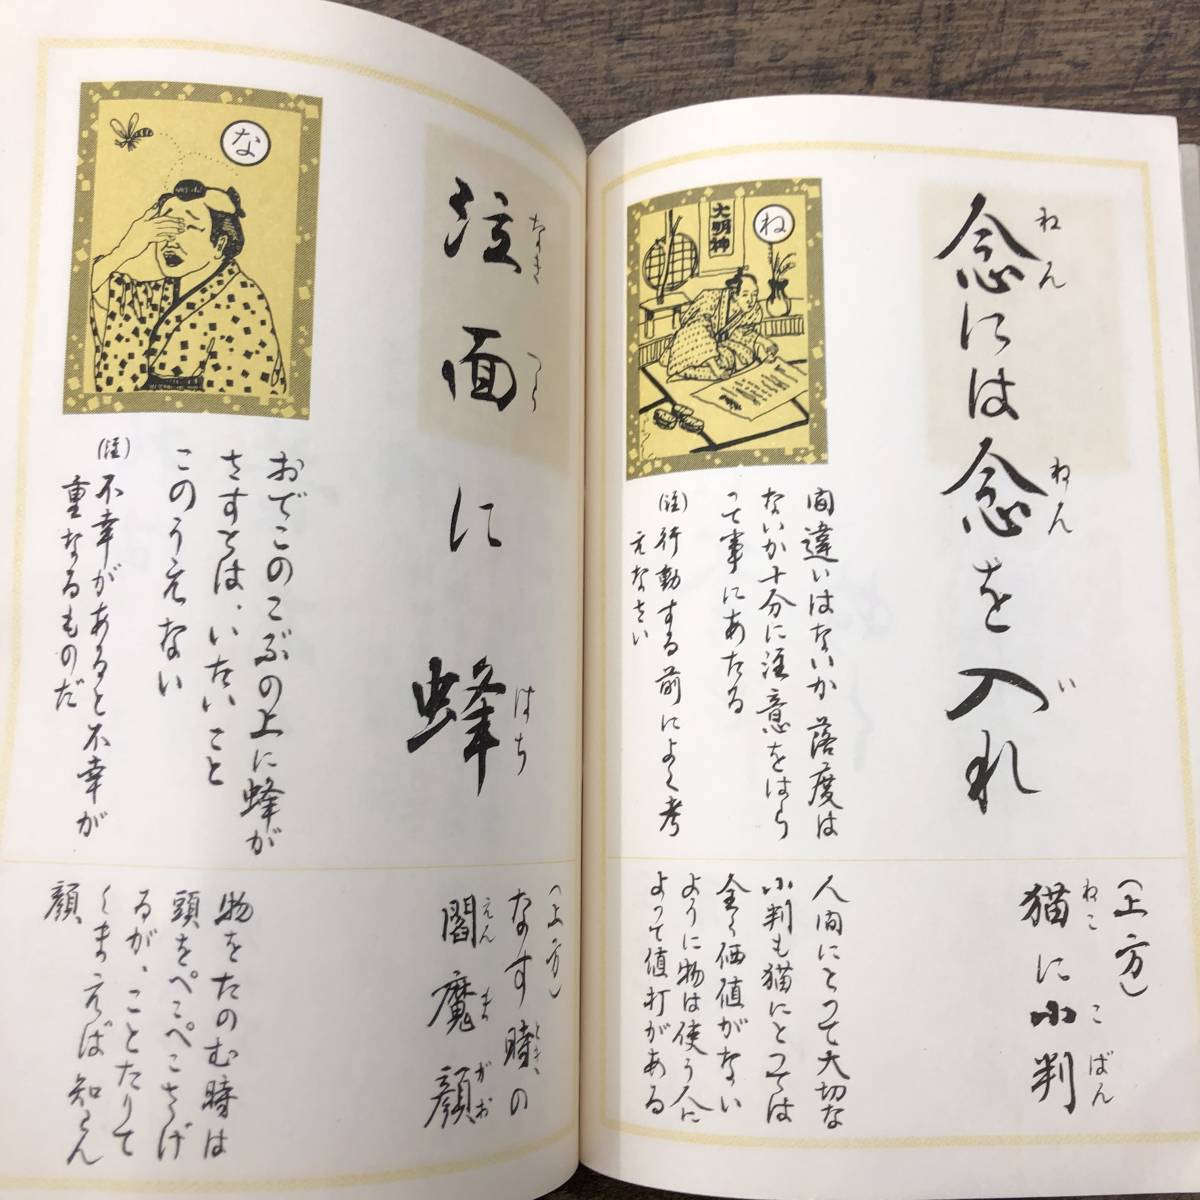 念には念を入れ
ねん
ねん
い
ね
大明神
間違いはないか落度は
ないか十分に注意をはら
って事にあたる
(註)行動する前によく考
えなさい
(上方)
猫に小判
ねこ
こばん
人間にとって大切な
小判も猫にとっては
全く価値がない
ように物は使う人に
よって値打がある
泣面に蜂
なき
つら
はち
な
おでこのこぶの上に蜂が
さすとは、いたいこと
このうえない
(註)不幸があると不幸が
重なるものだ
(上方)
なす時の
とき
閻魔顔
えんまがお
物をたのむ時は
頭をぺこぺこさげ
るが、ことたりて
しまえば知らん
顔